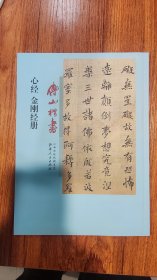 礙無罣礙故無有恐怖
遠離顛倒夢想究竟涅
槃三世諸佛依般若波
羅蜜多故得阿耨多羅
傅山楷書
心经 金刚经册